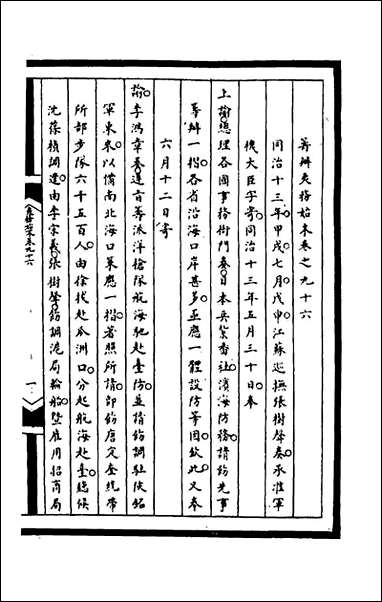 籌辦夷務始末卷之九十六
同治十三年甲戌七月戊申江蘇巡撫張樹聲奏承准軍
機大臣字寄同治十三年五月三十日奉
上諭總理各國事務衙門奏日本兵紮番社濱海防務請飭先事
籌辦一摺各省沿海口岸甚多亟應一體設防等因欽此又奉
六月十二日寄
諭李鴻章奏遵旨籌派洋槍隊航海馳赴臺防並請飭調駐陝銘
軍東來以備南北海口策應一摺著照所請即飭唐定奎統帶
所部步隊六千五百人由徐拔赴瓜洲口分起航海赴臺總候
沈葆楨調遣由李宗羲張樹聲飭調滬局輪船暨雇用招商局
籌辦夷務始末卷九十六
一